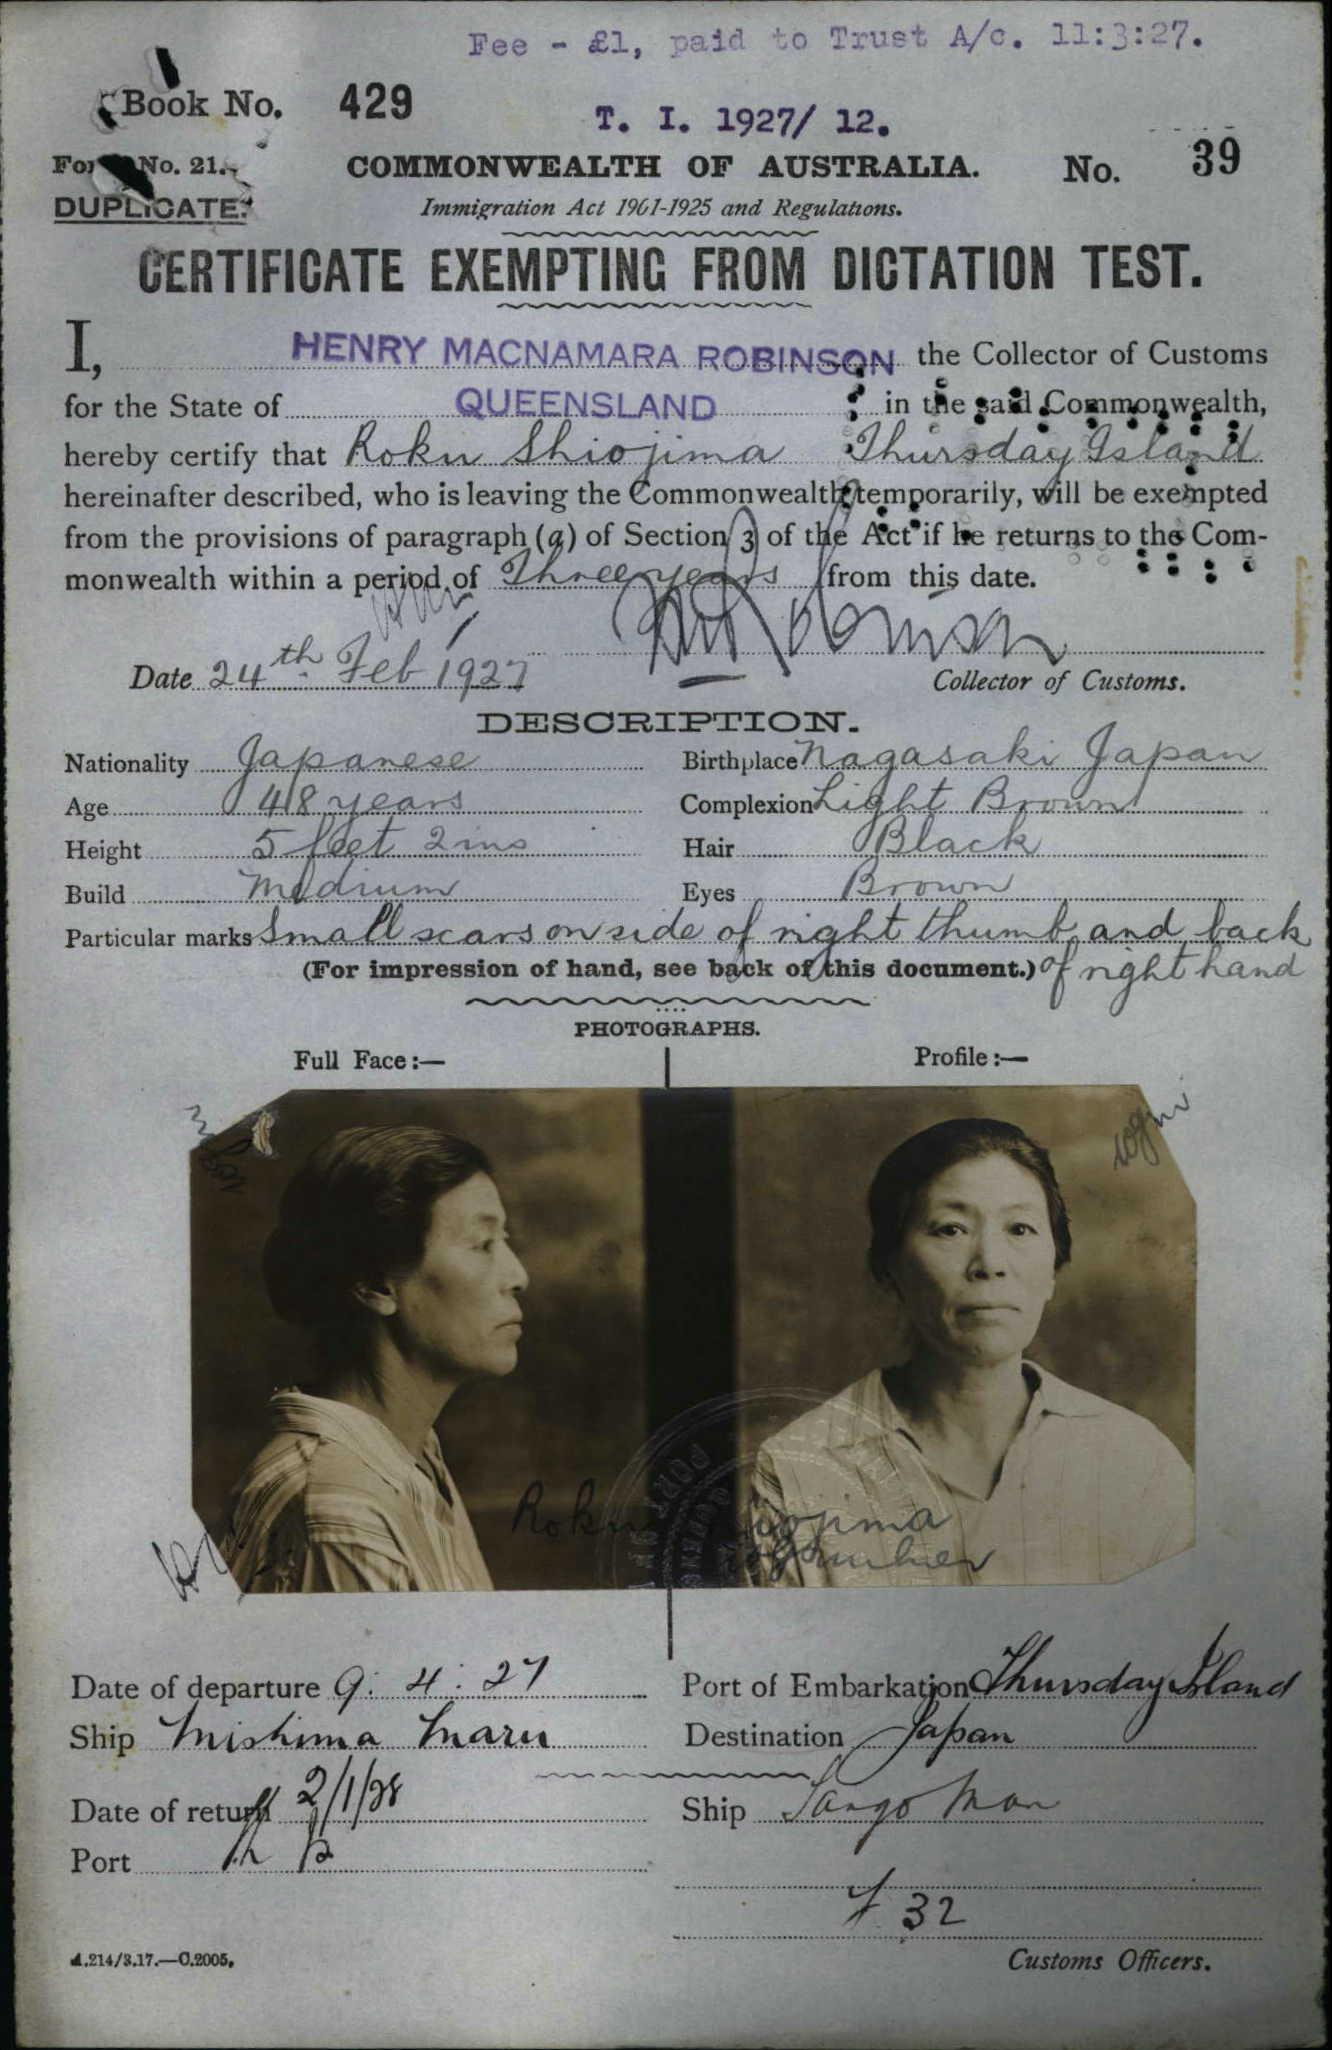 Fee - £1, paid to Trust A/c. 11:3:27.
Book No. 429
T. I. 1927/ 12.
Form No. 21.
COMMONWEALTH OF AUSTRALIA.
No. 39
DUPLICATE.
Immigration Act 1901-1925 and Regulations.
CERTIFICATE EXEMPTING FROM DICTATION TEST.
I, HENRY MACNAMARA ROBINSON the Collector of Customs
for the State of QUEENSLAND in the said Commonwealth,
hereby certify that Roku Shiojima Thursday Island
hereinafter described, who is leaving the Commonwealth temporarily, will be exempted
from the provisions of paragraph (a) of Section 3 of the Act if he returns to the Com-
monwealth within a period of Three years from this date.
Date 24th Feb 1927
Collector of Customs.
DESCRIPTION.
Nationality Japanese Birthplace Nagasaki Japan
Age 48 years Complexion Light Brown
Height 5 feet 2 ins Hair Black
Build Medium Eyes Brown
Particular marks Small scars on side of right thumb and back
(For impression of hand, see back of this document.) of right hand
PHOTOGRAPHS.
Full Face:— Profile:—
Roku Shiojima
Date of departure 9: 4: 27 Port of Embarkation Thursday Island
Ship Mishima Maru Destination Japan
Date of return 2/1/28 Ship Tango Maru
Port
32
A.214/3.17.—C.2005.
Customs Officers.